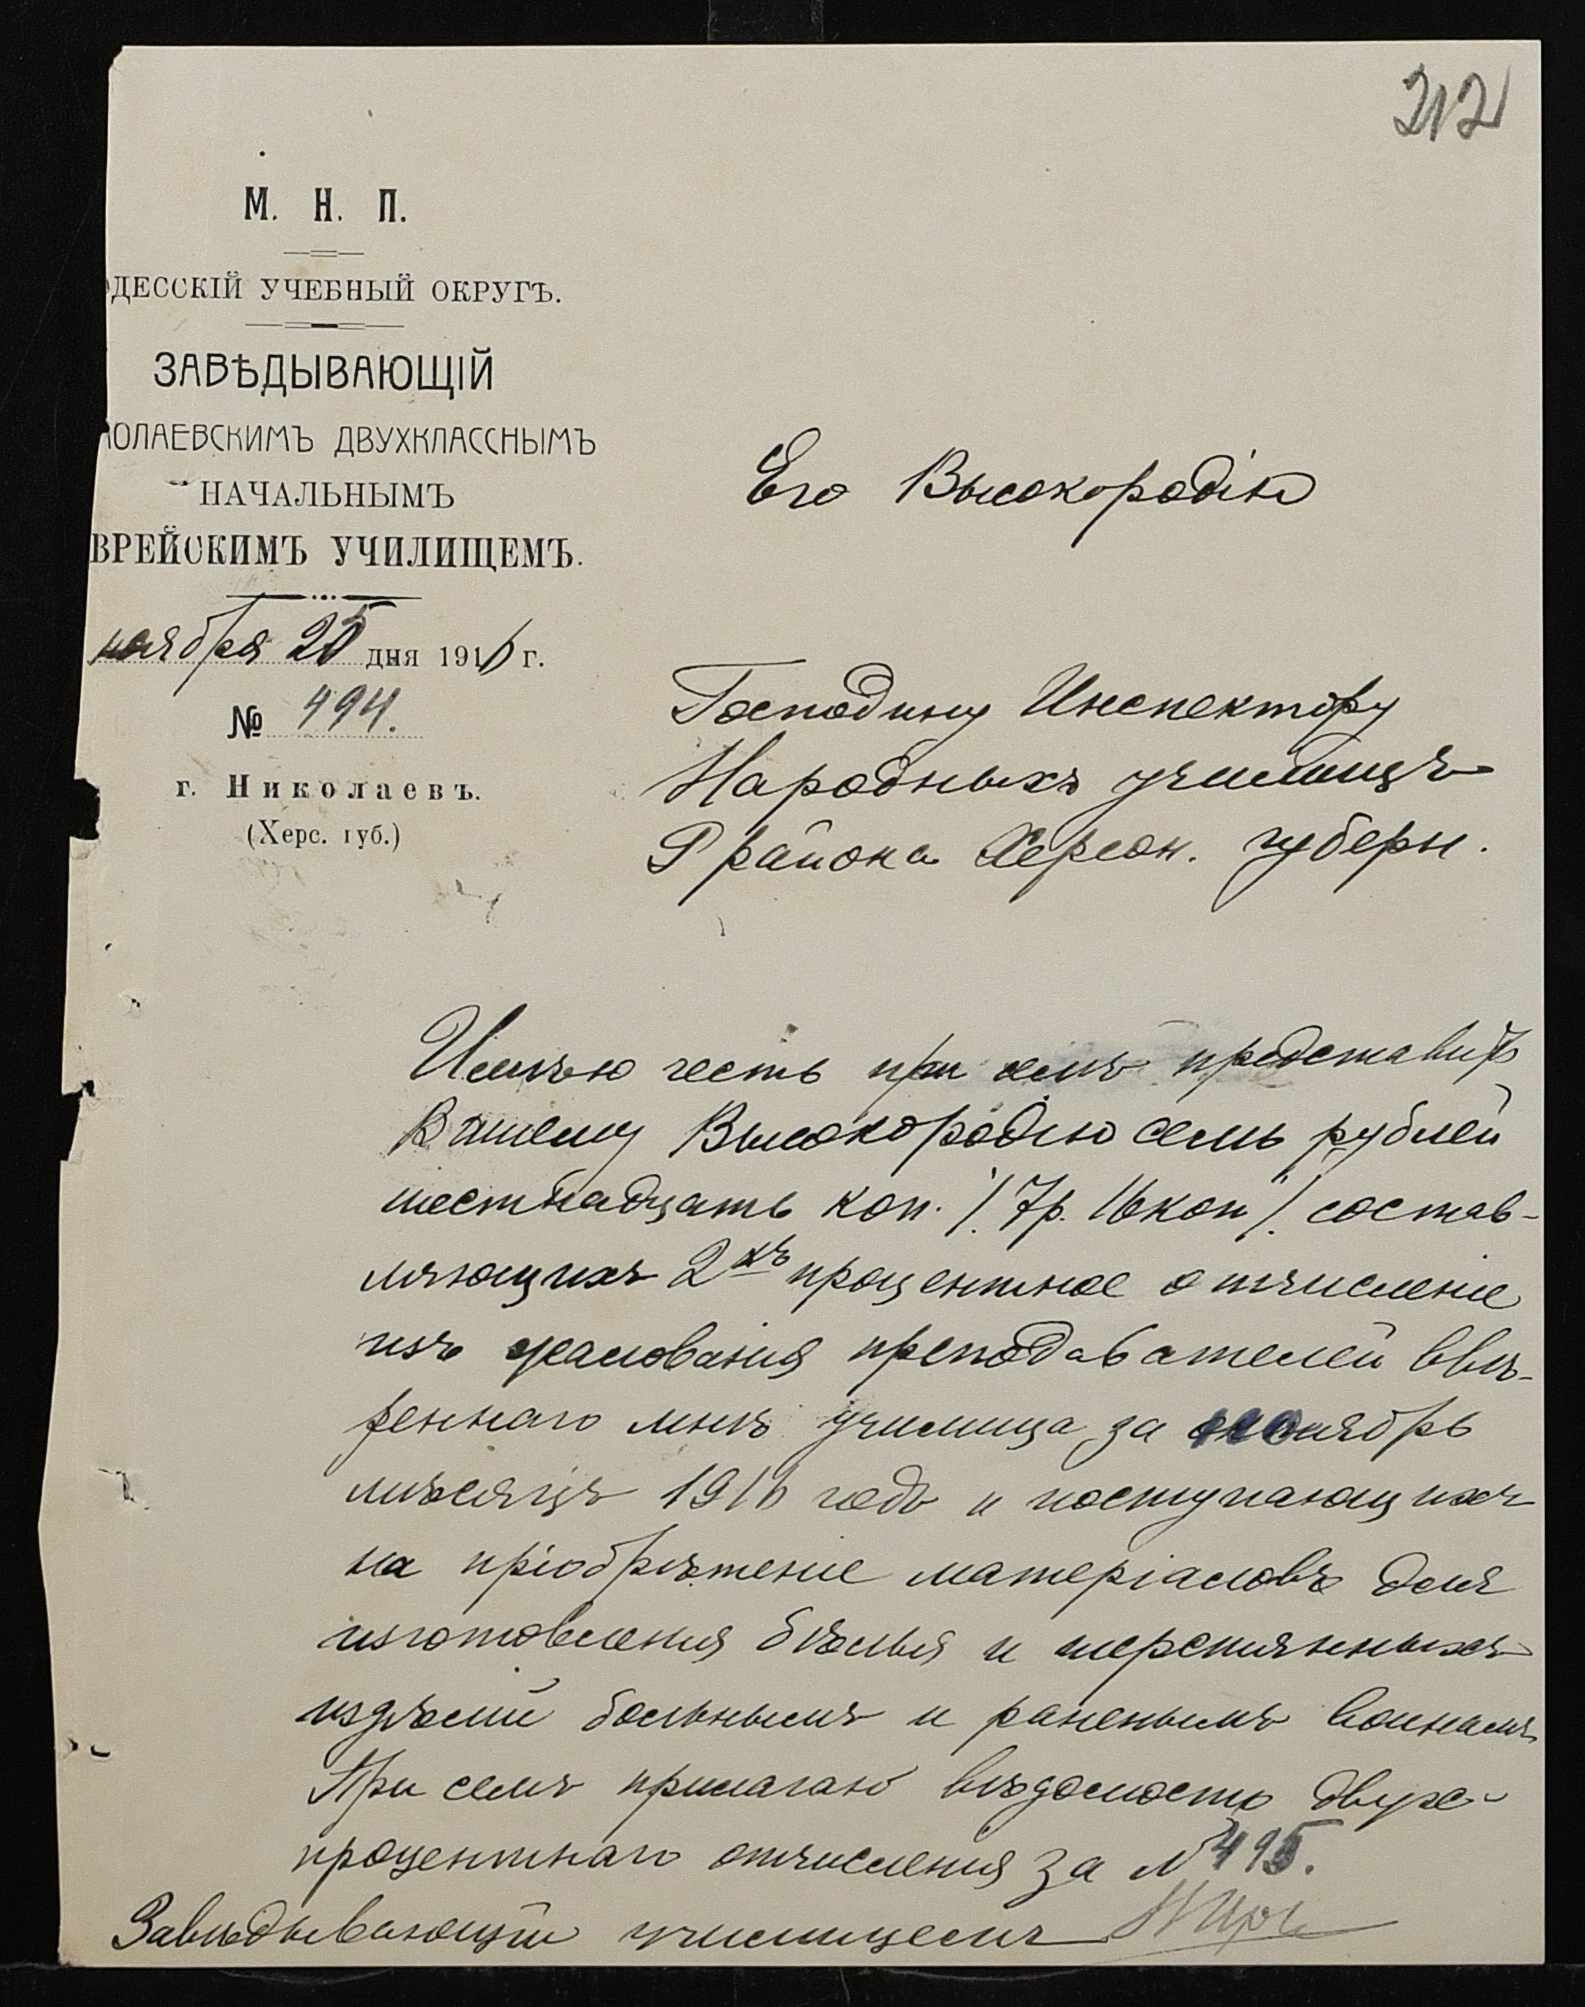 212
М. Н. П.
ДЕССКІЙ УЧЕБНЫЙ ОКРУГЪ.
ЗАВѢДЫВАЮЩІЙ
ОЛАЕВСКИМЪ ДВУХКЛАССНЫМЪ
НАЧАЛЬНЫМЪ
ВРЕЙСКИМЪ УЧИЛИЩЕМЪ.
ноября 25 дня 1916 г.
№ 494.
г. Николаевъ.
(Херс. губ.)
Его Высокородію
Господину Инспектору
Народныхъ училищъ
района Херсон. губерн.
Имѣю честь при семъ представить
Вашему Высокородію семь рублей
шестнадцать коп. /. 7р. 16 коп /. состав-
ляющихъ 2хъ процентное отчисленіе
изъ жалованія преподавателей ввѣ-
реннаго мнѣ училища за ноябрь
мѣсяцъ 1916 годъ и поступающихъ
на пріобрѣтеніе матеріаловъ для
изготовленія бѣлья и шерстянныхъ
издѣлій больнымъ и раненымъ воинамъ
При семъ прилагаю вѣдомость двухъ-
процентнаго отчисленія за № 495.
Завѣдывающій училищемъ